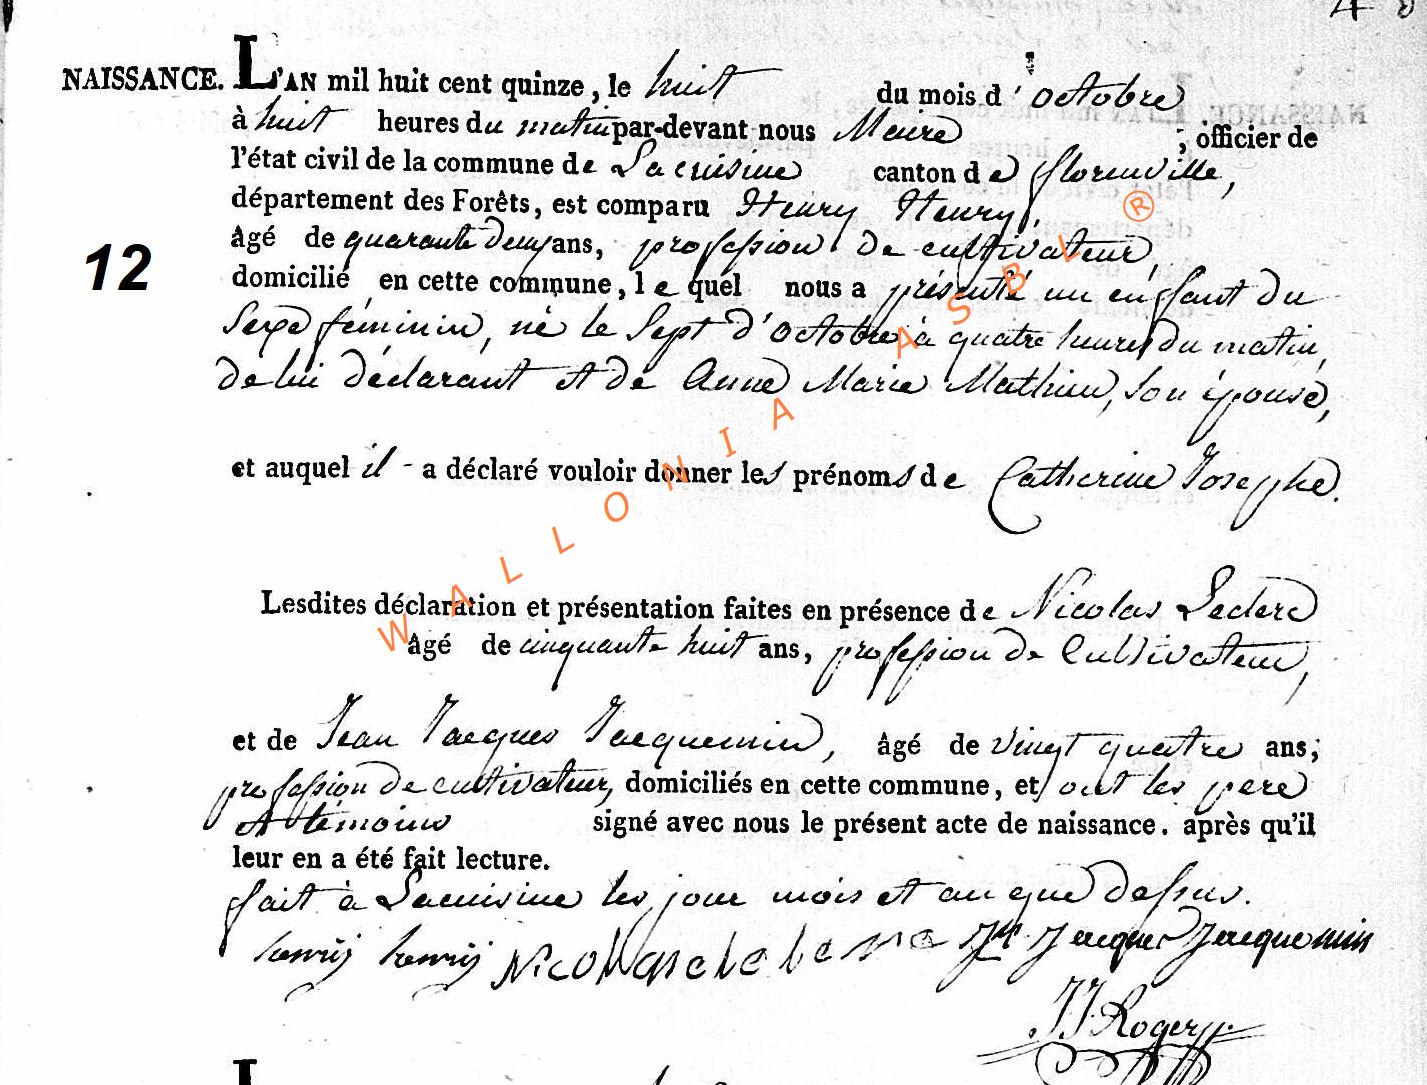 4 8
NAISSANCE. L'AN mil huit cent quinze, le huit du mois d'octobre
à huit heures du matin par-devant nous Maire , officier de
l'état civil de la commune de Lacuisine canton de florenville,
département des Forêts, est comparu Henry Henry,
âgé de quarante deux ans, profession de cultivateur,
12
domicilié en cette commune, lequel nous a présenté un enfant du
Sexe féminin, né le Sept d'octobre à quatre heures du matin,
de lui déclarant et de Anne Marie Mathieu, son épouse,
et auquel il - a déclaré vouloir donner les prénoms de Catherine Josephe.
Lesdites déclaration et présentation faites en présence de Nicolas Leclerc
âgé de cinquante huit ans, profession de Cultivateur,
et de Jean Jacques Jacquemin, âgé de vingt quatre ans;
profession de cultivateur, domiciliés en cette commune, et ont les père
et témoins signé avec nous le présent acte de naissance. après qu'il
leur en a été fait lecture.
fait à Lacuisine les jour mois et an que dessus.
henrij henrij Nicolas Jacque Jacquemin
JJ Roger
L
WALLONIA ASBL ®